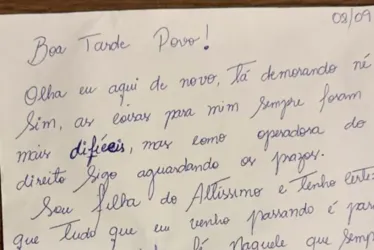 08/09
Boa Tarde Povo!
Olha eu aqui de novo, tá demorando né
Sim, as coisas para mim sempre foram
mais difíceis, mas como operadora do
direito sigo aguardando os prazos.
Sou filha do Altíssimo e tenho certez
que tudo que eu venho passando é par
Naquele que semp